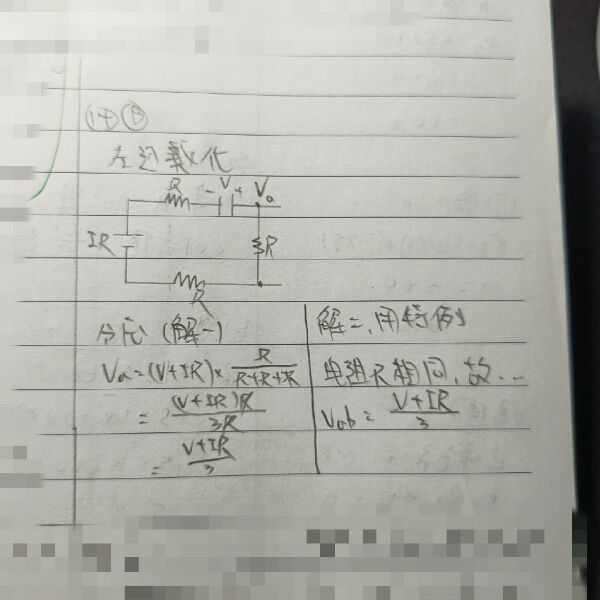 14 B
左边戴化
R - V + Va
IR R
R
分压 (解一)
Va = (V+IR) × R/(R+R+R)
= (V+IR)R/3R
= V+IR/3
解二、用特例
电阻R相同，故...
Vab = V+IR/3